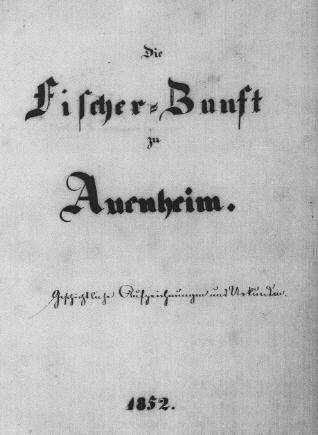 Die
Fischer-Zunft
zu
Auenheim.
Geschichtliche Aufzeichnungen und Urkunden.
1852.